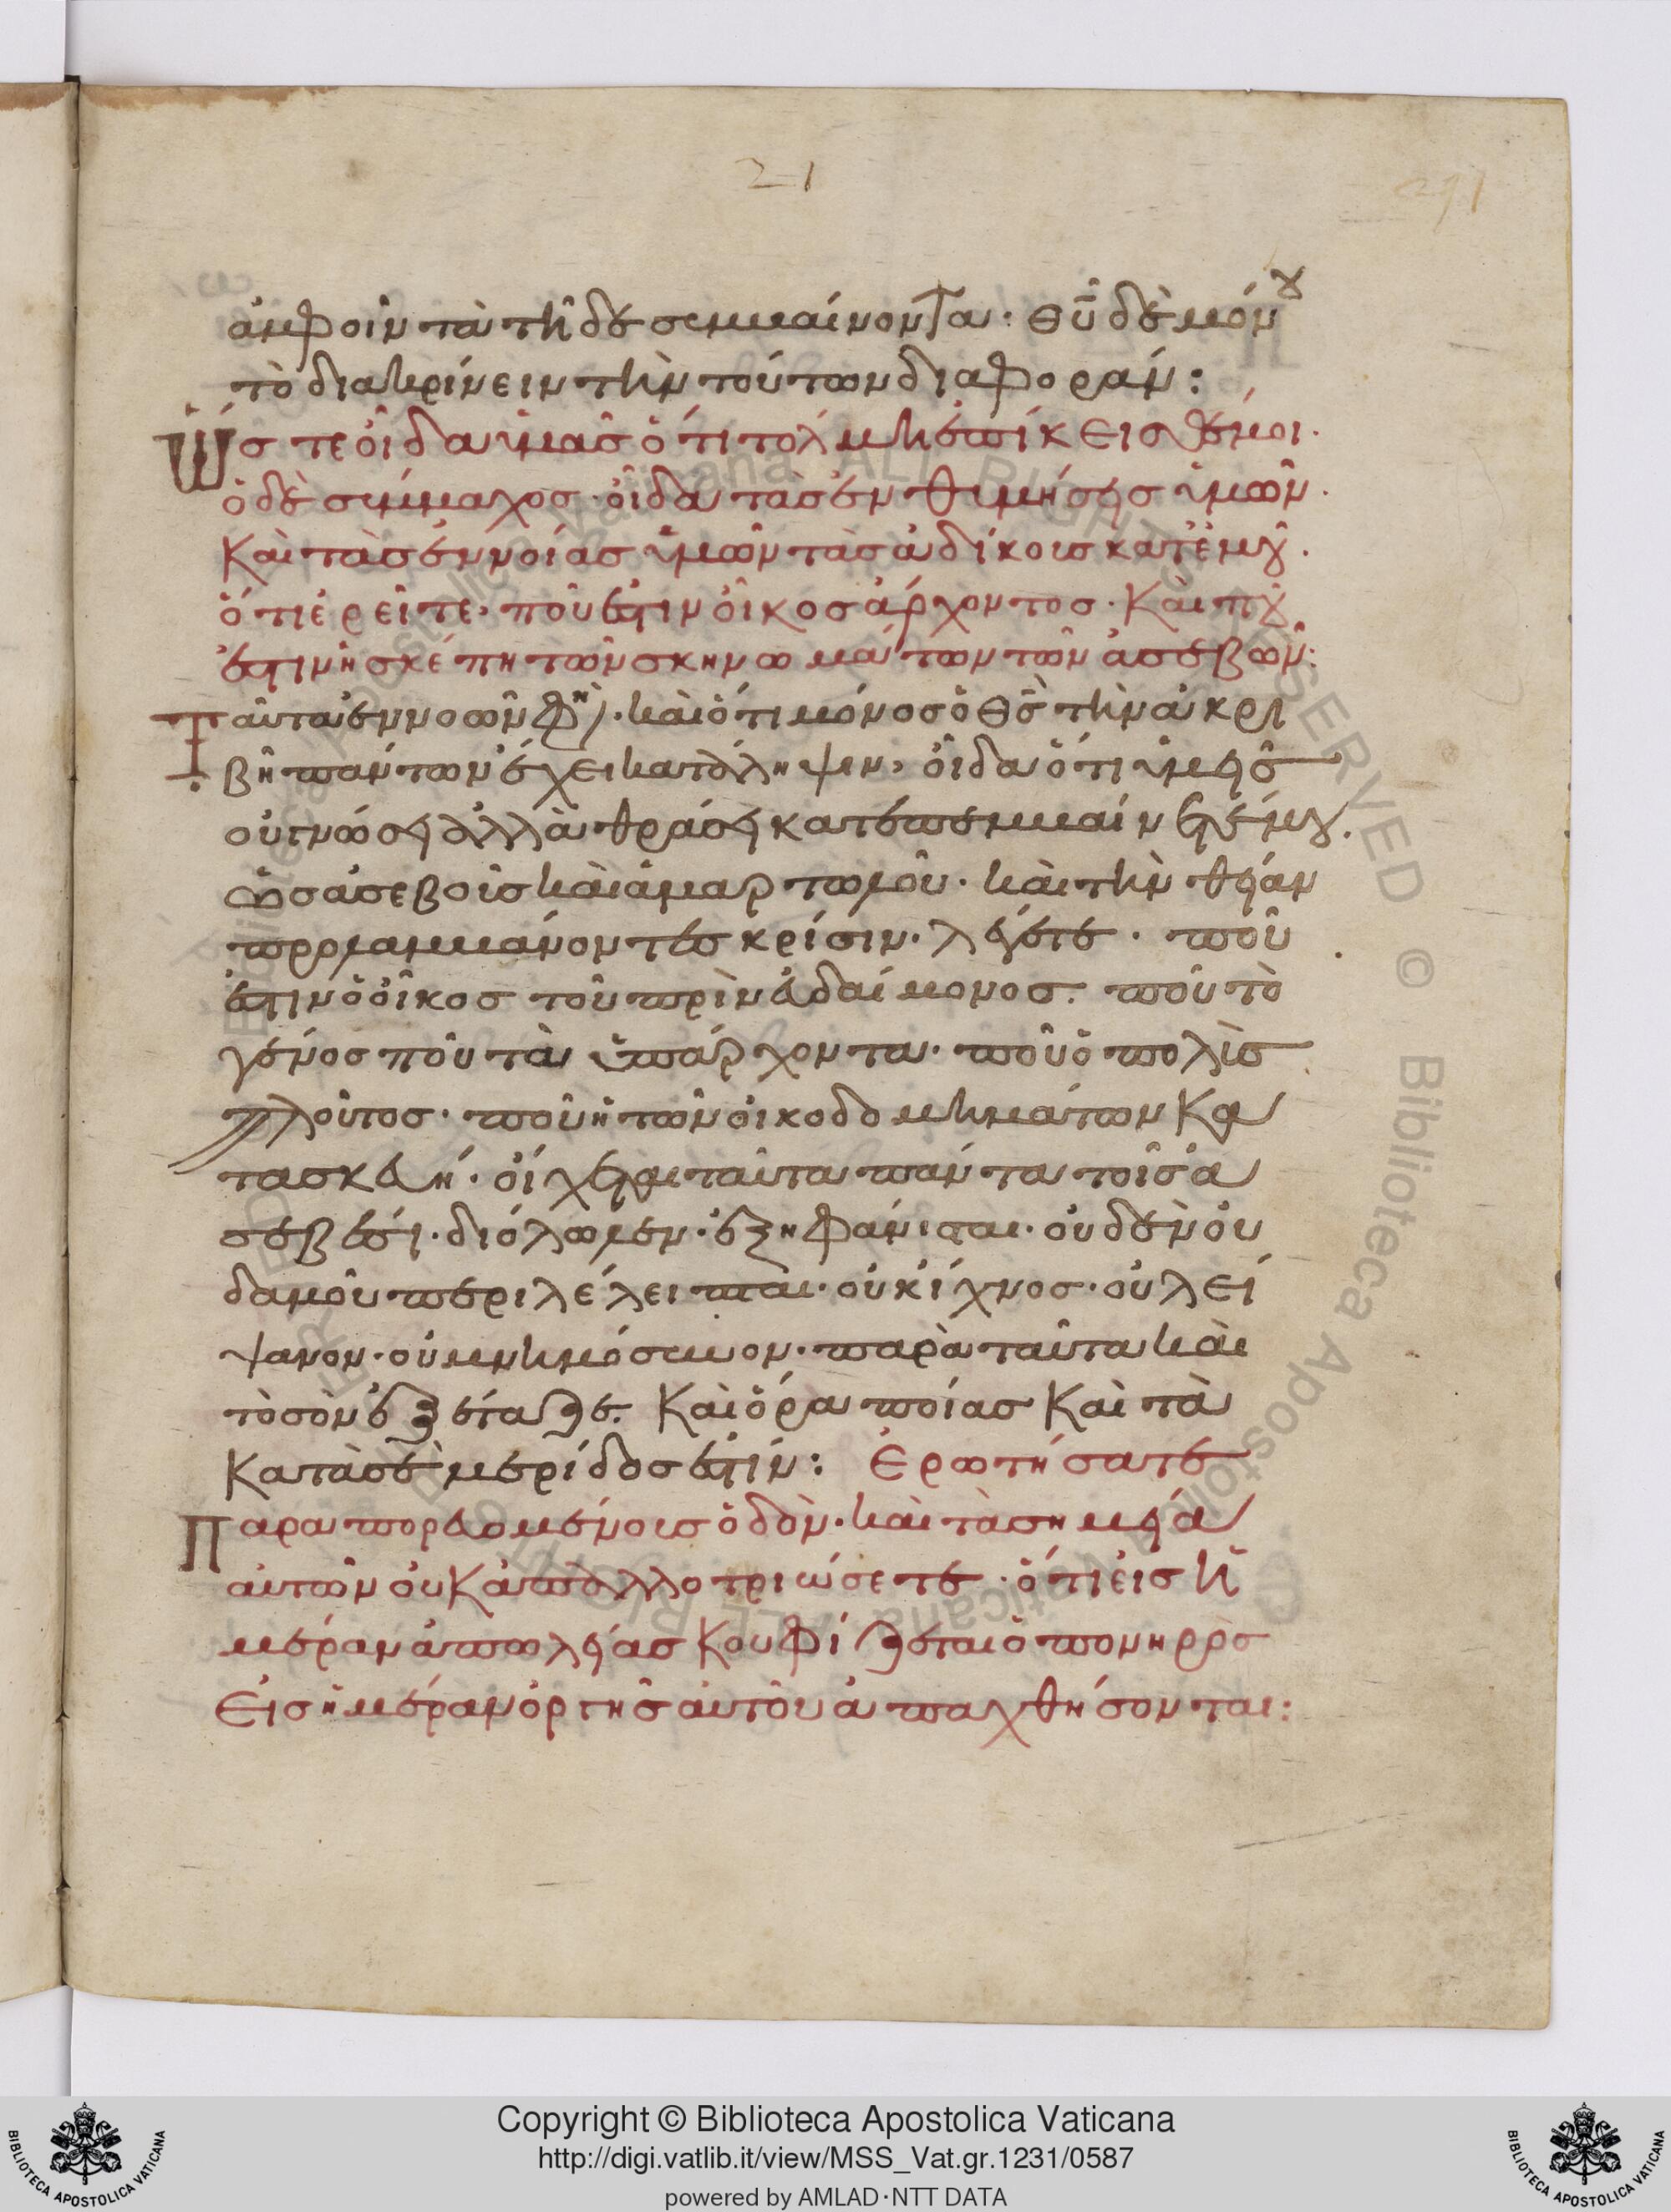 21
291
ἀμφοῖν τὰ τῆδε συμμαίνοντα· θῦ δὲ μόνου
τὸ διακρίνειν τὴν τούτων διαφοράν:
Ὥστε οἶδα ὑμᾶς ὅτι τόλμη ἐπίκεισθέ μοι·
ὁ δὲ σύμμαχος· οἶδα τὰς ἐνθυμήσεις ὑμῶν·
Καὶ τὰς ἐννοίας ὑμῶν τὰς ἀδίκους κατ' ἐμοῦ·
ὅτι ἐρεῖτε· ποῦ ἐστιν οἶκος ἄρχοντος· Καὶ ποῦ
ἐστιν ἡ σκέπη τῶν σκηνωμάτων τῶν ἀσεβῶν:
Ταῦτα ἐννοῶν φη(σὶ)· καὶ ὅτι μόνος ὁ θς τὴν ἀκρι
βῆ πάντων ἔχει κατάληψιν, οἶδα ὅτι ὑμεῖς
οὐ γνώσει ἀλλὰ θράσει κατεπεμβαίνετέ μου·
ὡς ἀσεβοῦς καὶ ἁμαρτωλοῦ· καὶ τὴν θείαν
προλαμβάνοντες κρίσιν· λέγετε· ποῦ
ἐστιν ὁ οἶκος τοῦ πρὶν εὐδαίμονος· ποῦ τὸ
γένος ποῦ τὰ ὑπάρχοντα· ποῦ ὁ πολὺς
πλοῦτος· ποῦ ἡ τῶν οἰκοδομημάτων Κα
τασκευή· οἴχεται ταῦτα πάντα τοῖς ἀ
σεβέσι· διόλωλεν· ἐξηφάνισται· οὐδὲν οὐ
δαμοῦ περιλέλειπται· οὐκ ἴχνος· οὐ λεί
ψανον· οὐ μνημόσυνον· παρὰ ταῦτα καὶ
τὸ σὸν ἐξετάζεται· Καὶ ὅρα ποίας Καὶ τὰ
Κατὰ σὲ μερίδος ἐστίν: Ἐρωτήσατε
Παραπορευομένους ὁδόν· καὶ τὰ σημεῖα
αὐτῶν οὐκ ἀπαλλοτριώσετε· ὅτι εἰς ἡ
μέραν ἀπωλείας Κουφίζεται ὁ πονηρὸς
Εἰς ἡμέραν ὀργῆς αὐτοῦ ἀπαχθήσονται:
Copyright © Biblioteca Apostolica Vaticana
http://digi.vatlib.it/view/MSS_Vat.gr.1231/0587
powered by AMLAD·NTT DATA